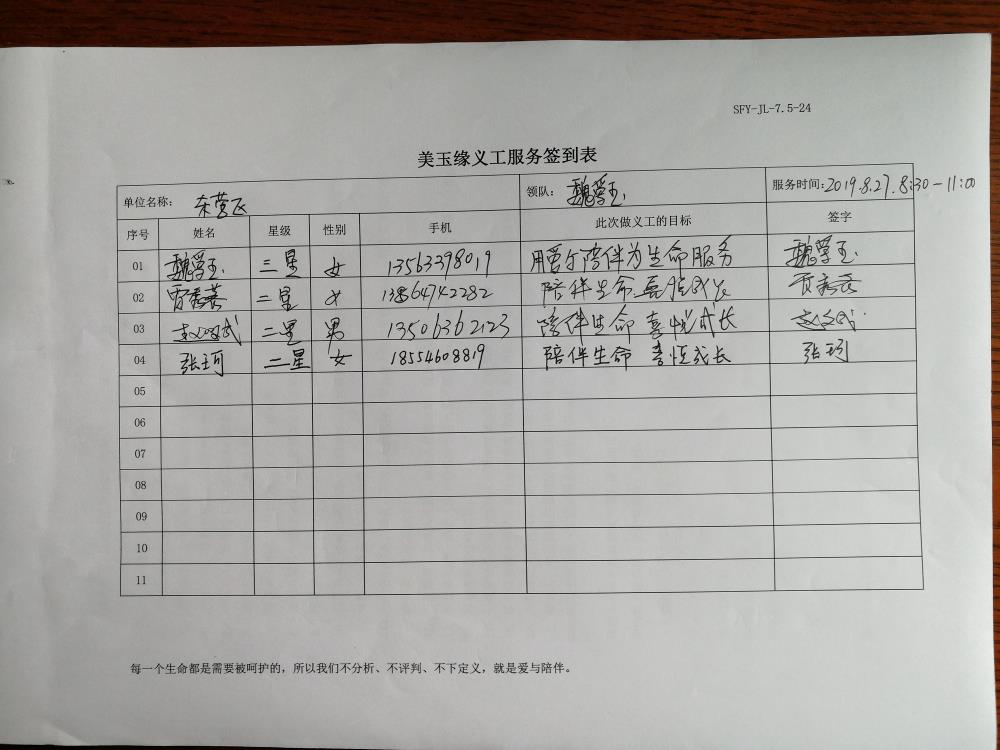 SFY-JL-7.5-24
美玉缘义工服务签到表
单位名称： 东营区 领队： 魏学玉 服务时间：2019.8.27. 8:30-11:00
序号 姓名 星级 性别 手机 此次做义工的目标 签字
01 魏学玉 三星 女 13563398019 用爱与陪伴为生命服务 魏学玉
02 贾秀蓉 二星 女 13864742282 陪伴生命 喜悦成长 贾秀蓉
03 二星 男 13506362123 陪伴生命 喜悦成长
04 张珂 二星 女 18554608819 陪伴生命 喜悦成长 张珂
05
06
07
08
09
10
11
每一个生命都是需要被呵护的，所以我们不分析、不评判、不下定义，就是爱与陪伴。